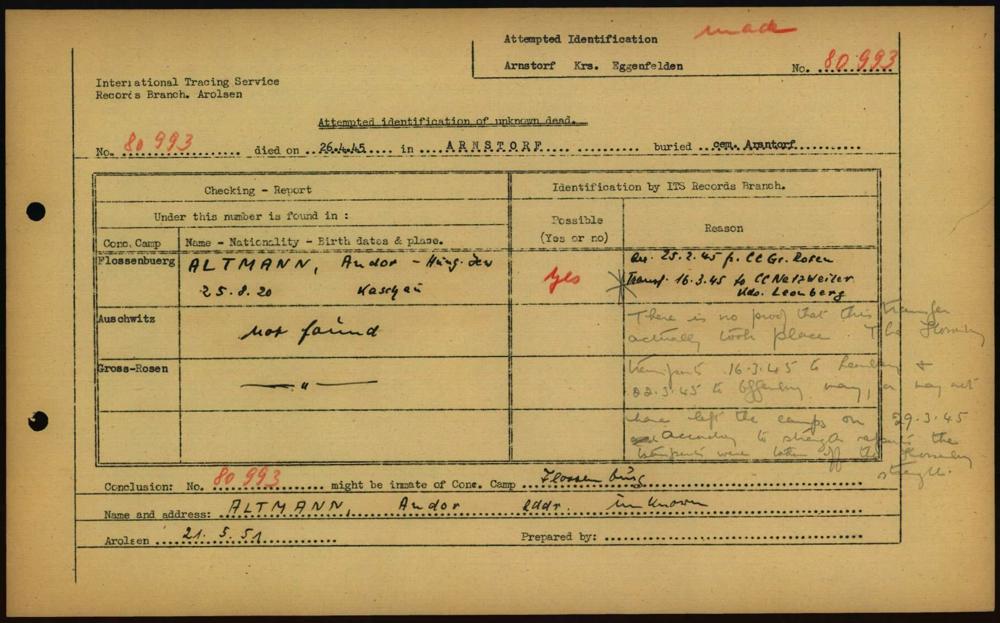 Attempted Identification made
Arnstorf Krs. Eggenfelden No. 80.993
International Tracing Service
Records Branch. Arolsen
Attempted identification of unknown dead.
No. 80 993 died on 26.4.45 in ARNSTORF buried cem. Arnstorf
Checking - Report
Identification by ITS Records Branch.
Under this number is found in :
Possible
(Yes or no)
Reason
Conc. Camp
Name - Nationality - Birth dates & place.
Flossenbuerg
ALTMANN, Andor - Hung. Jew
25.8.20 Kaschau
Yes
25.2.45 f. CC Gr. Rosen
Transf. 16.3.45 to CC Natzweiler
Kdo. Leonberg
Auschwitz
not found
There is no proof that this transfer
actually took place. The
Gross-Rosen
— " —
transports 16.3.45 to &
22.3.45 to may, or may not
have left the camps on 29.3.45
According to strength reports the
transports were taken off the Flossenburg
strength.
Conclusion: No. 80 993 might be inmate of Conc. Camp Flossenbürg
Name and address: ALTMANN, Andor addr. unknown
Arolsen 21. 5. 51 Prepared by: